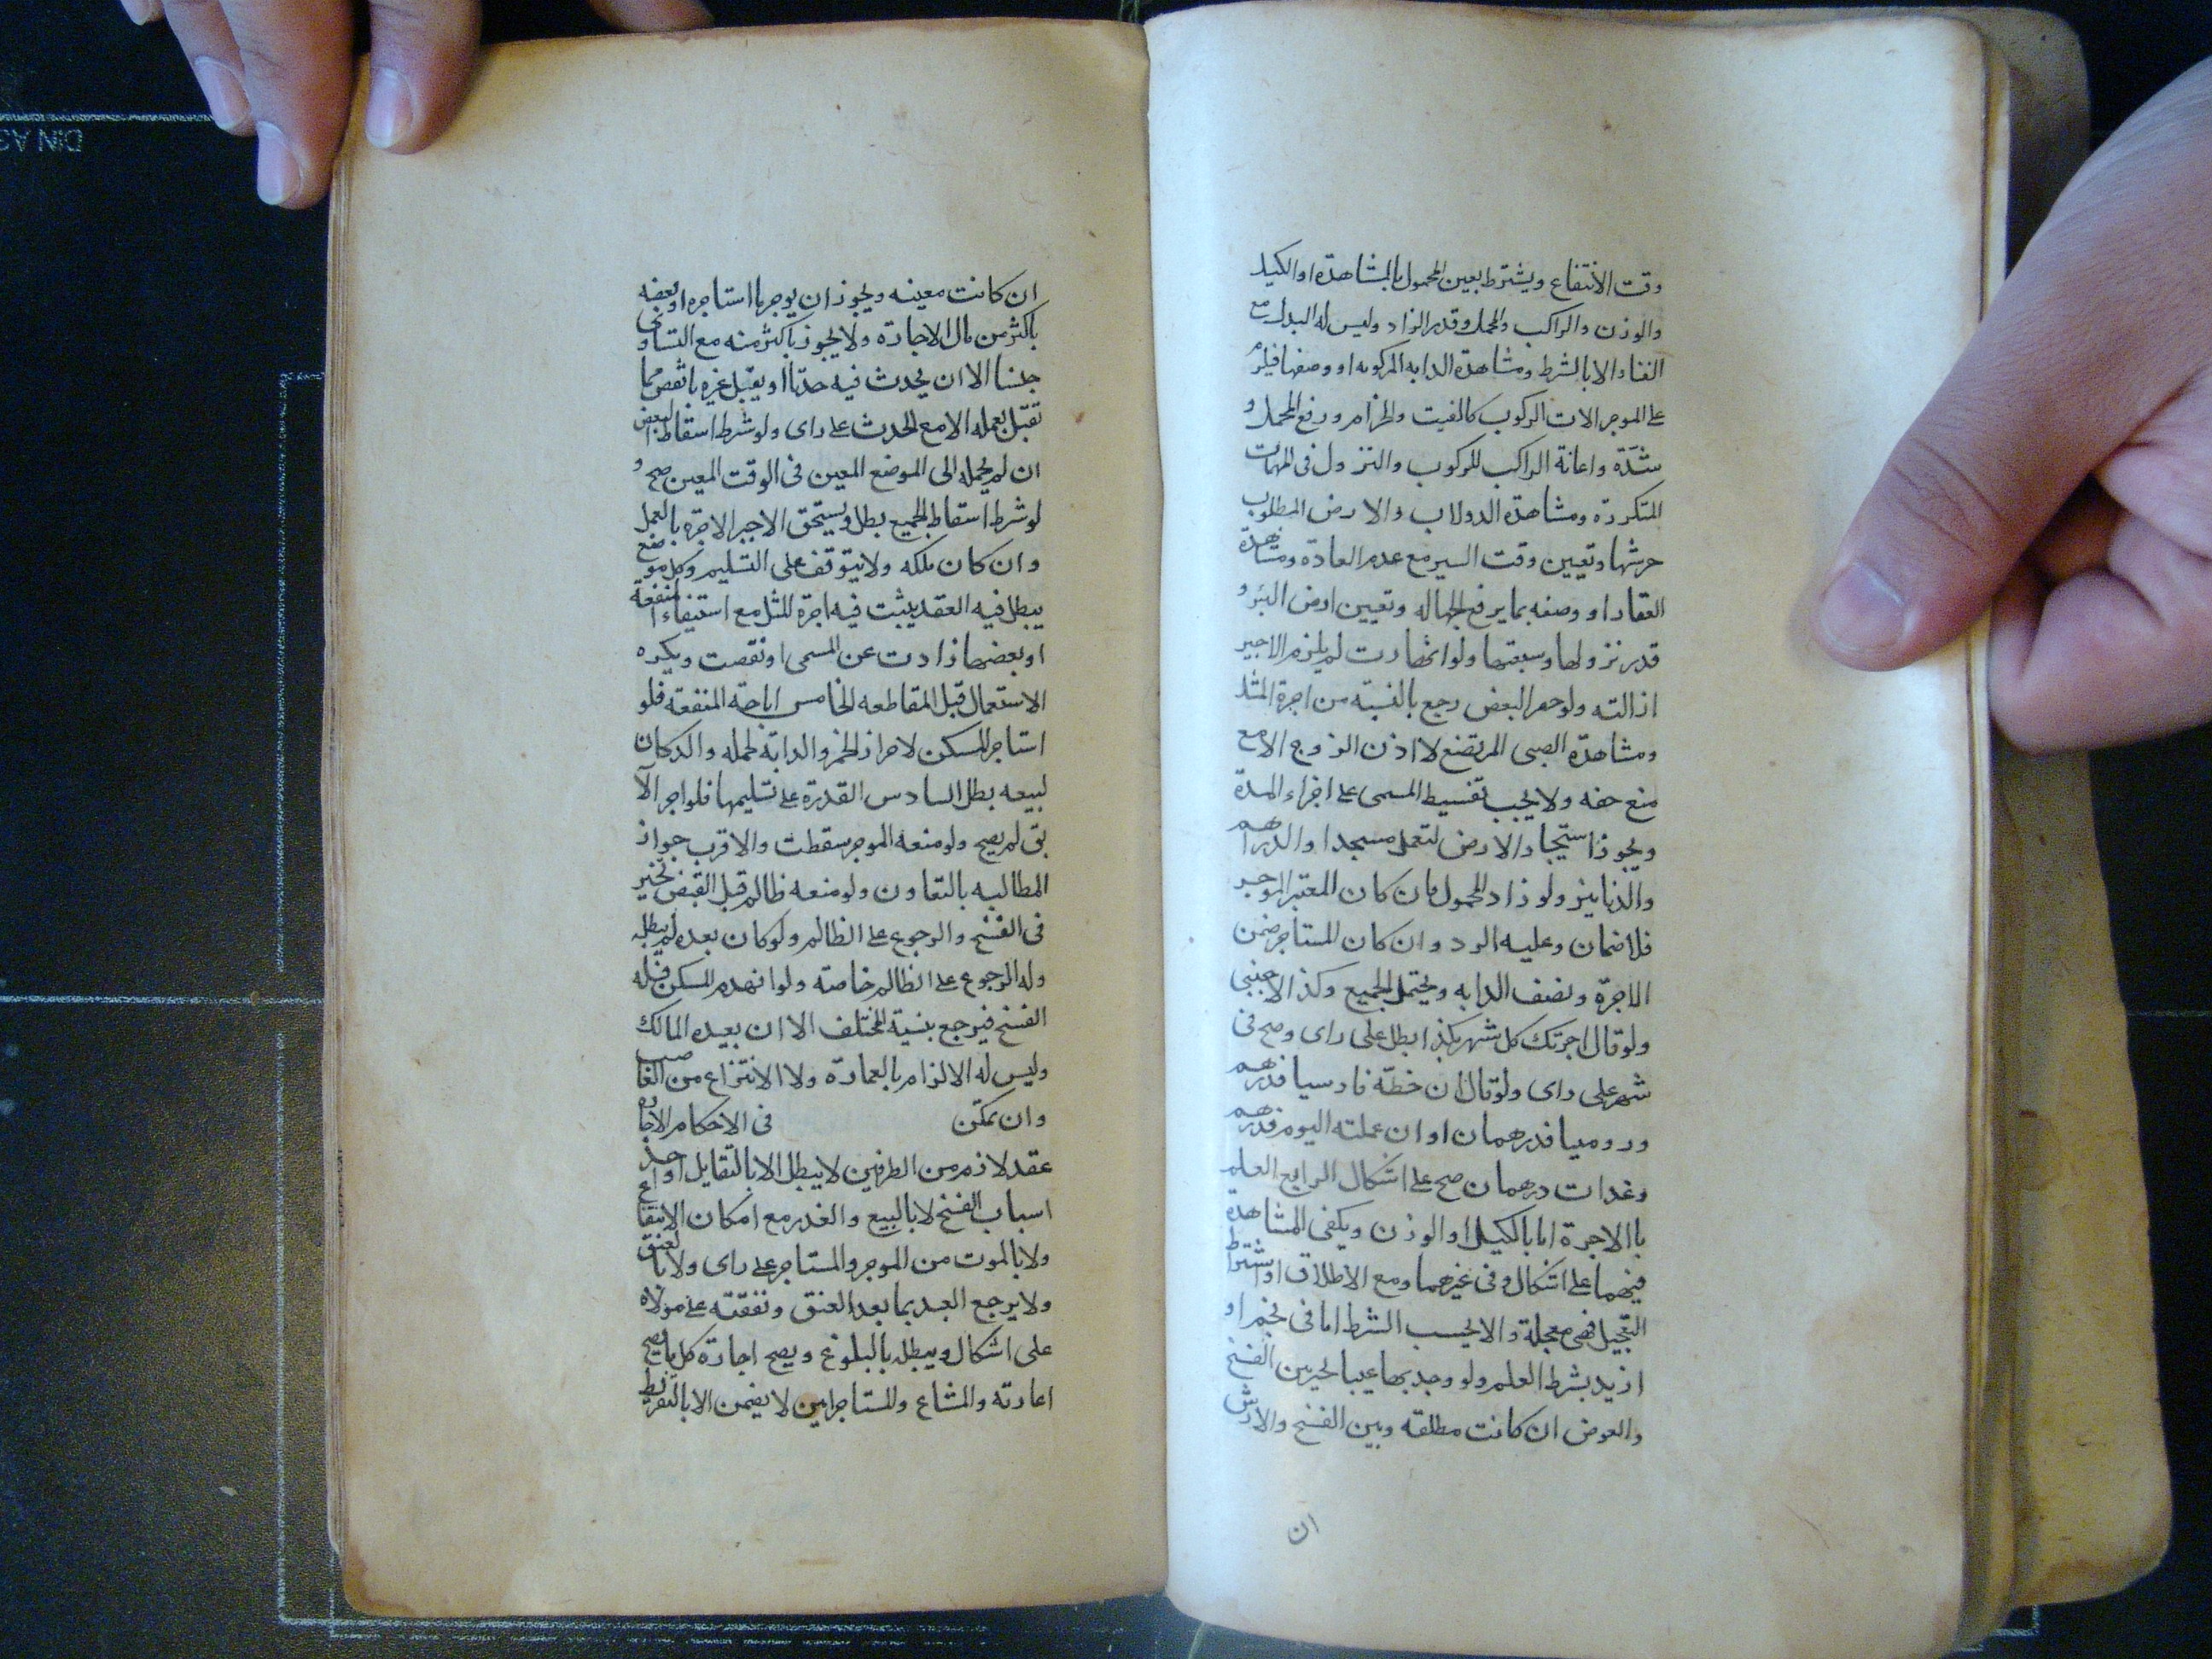 وقت الانتفاع ويشترط تعين المحمول بالمشاهدة او الكيل
والوزن والراكب والمحمل وقدر الزاد وليس له البدل مع
الفناء الا بالشرط ومشاهدة الدابه المركوبه او وصفها فيلزم
على الموجر الات الركوب كالقتب والحزام ورفع المحمل و
شدّه واعانة الراكب للركوب والنزول فى المهمات
المتكررة ومشاهدة الدولاب والارض المطلوب
حرثها وتعيين وقت السير مع عدم العادة ومشاهدة
العقار او وصفه بما يرفع الجهاله وتعيين ارض البئر و
قدر نزولها وسعتها ولو انهارت لم يلزم الاجير
ازالته ولو حفر البعض رجع بالنسبة من اجرة المثل
ومشاهدة الصبى المرتضع لا اذن الزوج الا مع
منع حقه ولا يجب تقسيط المسمى على اجزاء المدة
ويجوز استيجار الارض لتعمل مسجدا والدراهم
والدنانيز ولو زاد المحمول فان كان المعتبر الموجر
فلا ضمان وعليه الرد وان كان المستاجر ضمن
الاجرة ونصف الدابه ويحتمل الجميع وكذا الاجنبى
ولو قال اجرتك كل شهر بكذا بطل على راى وصح فى
شهر على راى ولو قال ان خطّه فارسيا فدرهم
وروميا فدرهمان او ان عملته اليوم فدرهم
وغدا ت درهمان صح على اشكال الرابع العلم
باالاجرة اما بالكيل او الوزن ويكفى المشاهدة
فيهما على اشكال وفى غيرهما ومع الاطلاق او اشتراط
التعجيل فهى معجلة والا بحسب الشرط اما فى نجم او
ازيد بشرط العلم ولو وجد بها عيبا تخير بين الفسخ
والعوض ان كانت مطلقه وبين الفسخ والارش
ان
ان كانت معينه ويجوز ان يوجر ما استاجره او بعضه
باكثر من مال الاجارة ولا يجوز باكثر منه مع التساوى
جنسا الا ان يحدث فيه حدثا او يقبل غيره بانقص مما
تقبل بعمله الا مع الحدث على راى ولو شرط اسقاط البعض
ان لم يحمله الى الموضع المعين فى الوقت المعين صح و
لو شرط اسقاط الجميع بطل ويستحق الاجير الاجرة بالعمل
وان كان ملكه ولا يتوقف على التسليم وكل موضع
يبطل فيه العقد يثبت فيه اجرة المثل مع استيفاء المنفعة
او بعضها زادت عن المسمى او نقصت ويكره
الاستعمال قبل المقاطعه الخامس اباحة المنفعة فلو
استاجر المسكن لاحراز الخمر والدابة لحمله والدكان
لبيعه بطل السادس القدرة على تسليمها فلو اجر الآ
بق لم يصح ولو منعه الموجر سقطت والاقرب جواز
المطالبه بالتفاوت ولو منعه ظالم قبل القبض تخير
فى الفسخ والرجوع على الظالم ولو كان بعده لم يبطل
وله الرجوع على الظالم خاصة ولو انهدم المسكن فله
الفسخ فيرجع بنسبة المختلف الا ان يعيده المالك
وليس له الالزام بالعمارة ولا الانتزاع من الغاصب
وان تمكّن فى الاحكام الاجاره
عقد لازم من الطرفين لا يبطل الا بالتقايل او احد
اسباب الفسخ لا بالبيع والعذر مع امكان الانتفاع
ولا بالموت من الموجر والمستاجر على راى ولا بالعتق
ولا يرجع العبد بما بعد العتق ونفقته على مولاه
على اشكال ويبطل بالبلوغ ويصح اجارة كل ما يصح
اعارته والمشاع والمستاجر امين لا يضمن الا بالتفريط